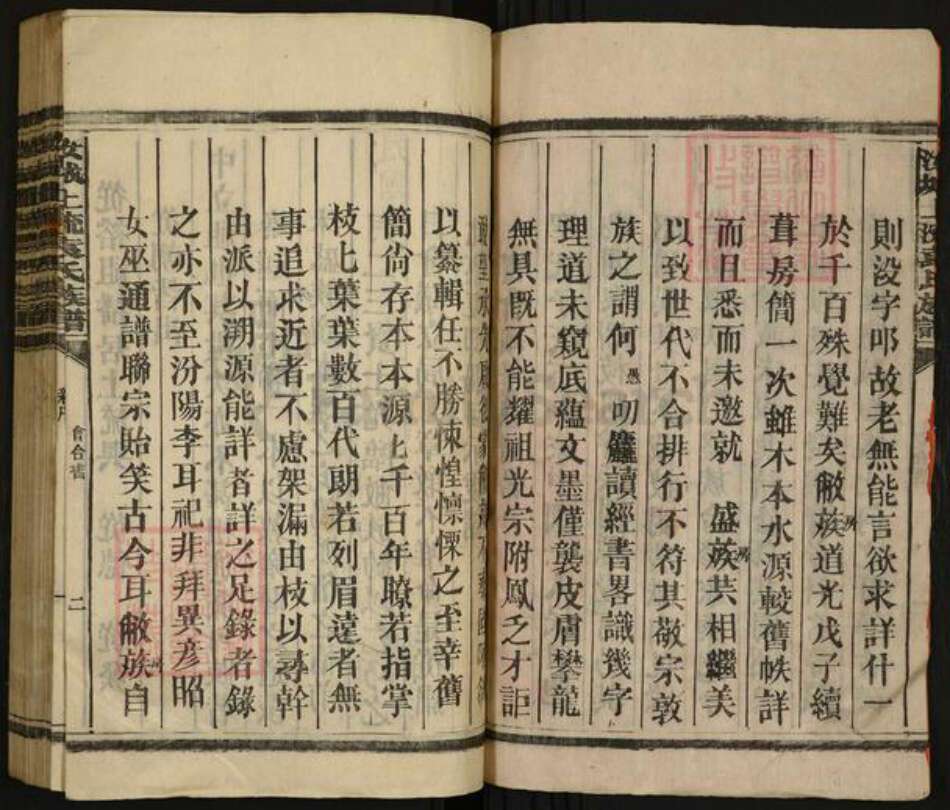 則没字叩故老無能言欲求詳什一
於千百殊覺難矣敝族房道光戊子續
葺房簡一次雖木本水源較舊帙詳
而且悉而未邀就 盛族房共相繼美
以致世代不合排行不符其敬宗敦
族之謂何愚叨讀經書畧識幾字
理道未窺底蘊文墨僅襲皮膚攀龍
無具既不能耀祖光宗附鳳乏才詎
以纂輯任不勝悚惶懍慄之至幸舊
簡尙存本本源上千百年瞭若指掌
枝上葉葉數百代朗若列眉遠者無
事追求近者不慮架漏由枝以尋幹
由派以溯源能詳者詳之足錄者錄
之亦不至汾陽李耳祀非拜異彦昭
女巫通譜聯宗貽笑古今耳敝族自
汝城上流袁氏族譜
會合舊
二